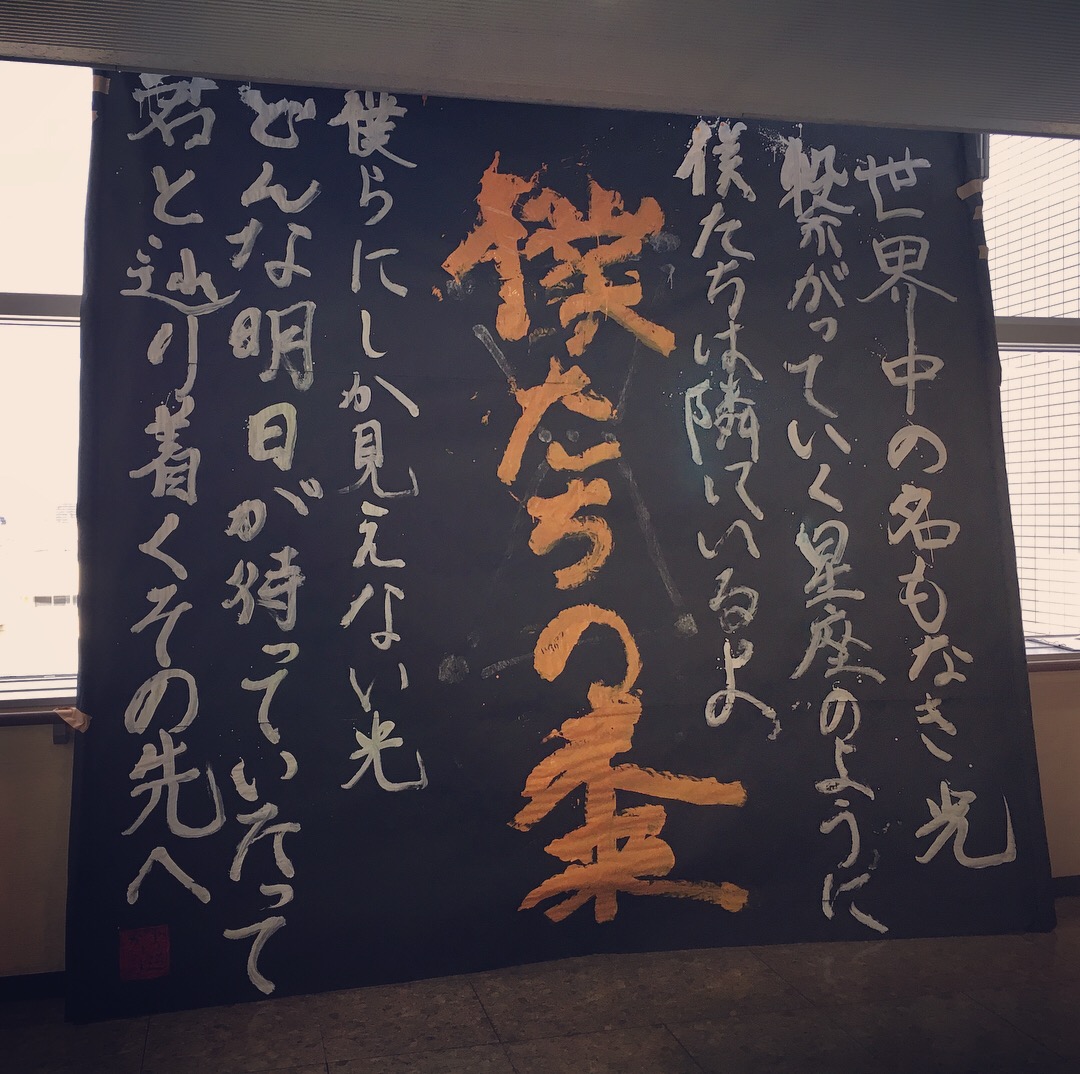 世界中の名もなき光
繋がっていく星座のように
僕たちは隣にいるよ
僕たちの未来
僕らにしか見えない光
どんな明日が待っていたって
君と辿り着くその先へ